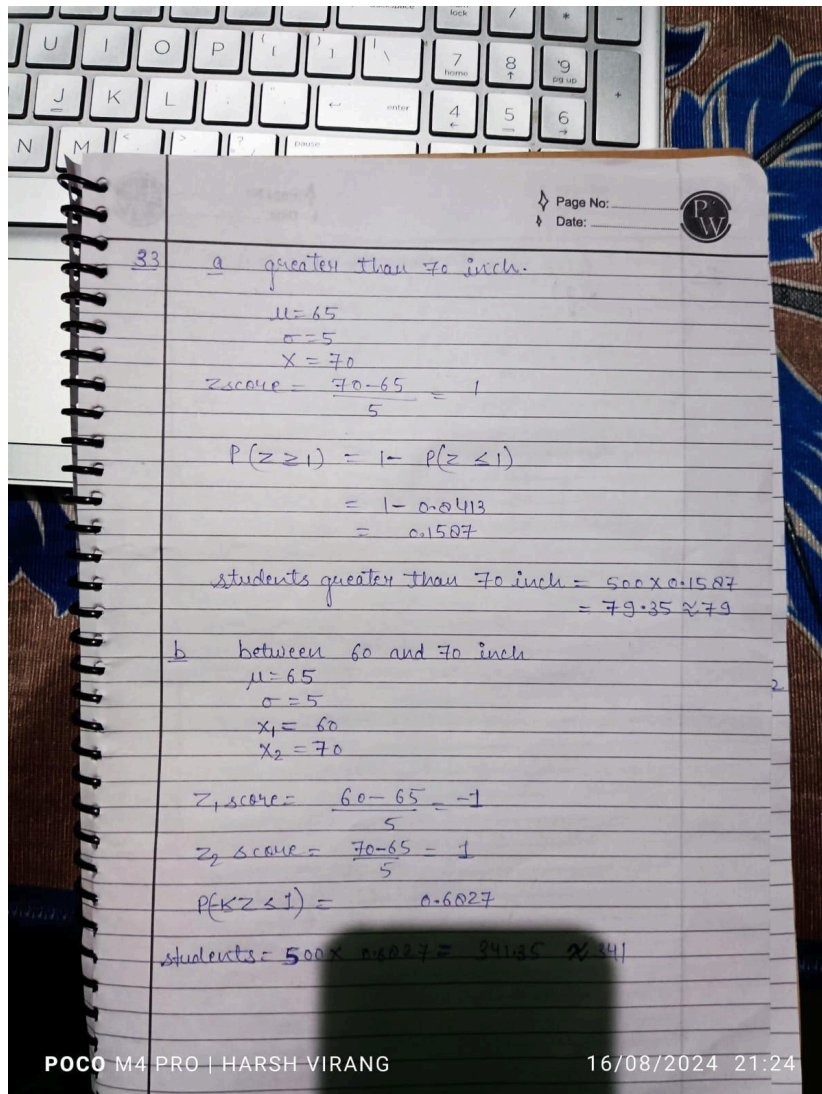 backspace
lock
/
*
-
U I O P { [ } ] | \
7 home 8 9 pg up
+
J K L : ; " '
enter
4 5 6
N M < > ? /
pause
Page No:
Date:
PW
33 a greater than 70 inch.
μ=65
σ=5
X=70
Zscore = 70-65 / 5 = 1
P(Z≥1) = 1- P(Z≤1)
= 1- 0.8413
= 0.1587
students greater than 70 inch = 500 x 0.1587
= 79.35 ≈79
b between 60 and 70 inch
μ=65
σ=5
X₁= 60
X₂=70
Z₁ score= 60-65 / 5 = -1
Z₂ score = 70-65 / 5 = 1
P(-1≤Z≤1) = 0.6827
students= 500x 0.6827= 341.35 ≈ 341
2
POCO M4 PRO | HARSH VIRANG
16/08/2024 21:24